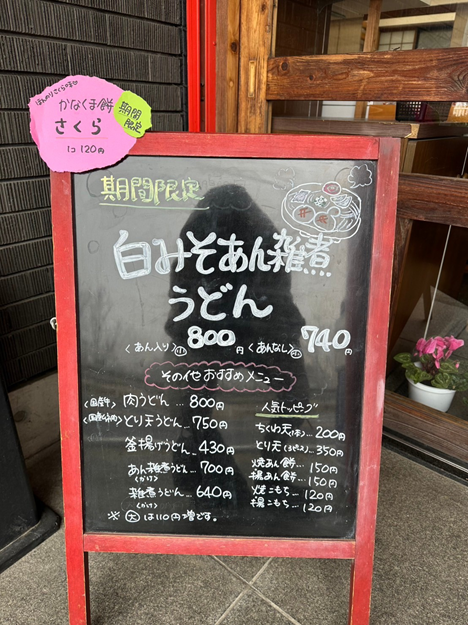 ほんのりさくら味
かなくま餅
さくら
1コ 120円
期間
限定
期間限定
白みそあん雑煮
うどん
〈あん入り〉小 800円 〈あんなし〉小 740円
その他おすすめメニュー
〈国産牛〉肉うどん… 800円
〈国産鶏肉〉とり天うどん… 750円
釜揚げうどん… 430円
あん雑煮うどん… 700円
(かけ)
雑煮うどん… 640円
(かけ)
※大は110円増です。
人気トッピング
ちくわ天(1本)… 200円
とり天(3ピース)… 350円
焼あん餅… 150円
揚あん餅… 150円
焼こもち… 120円
揚こもち… 120円